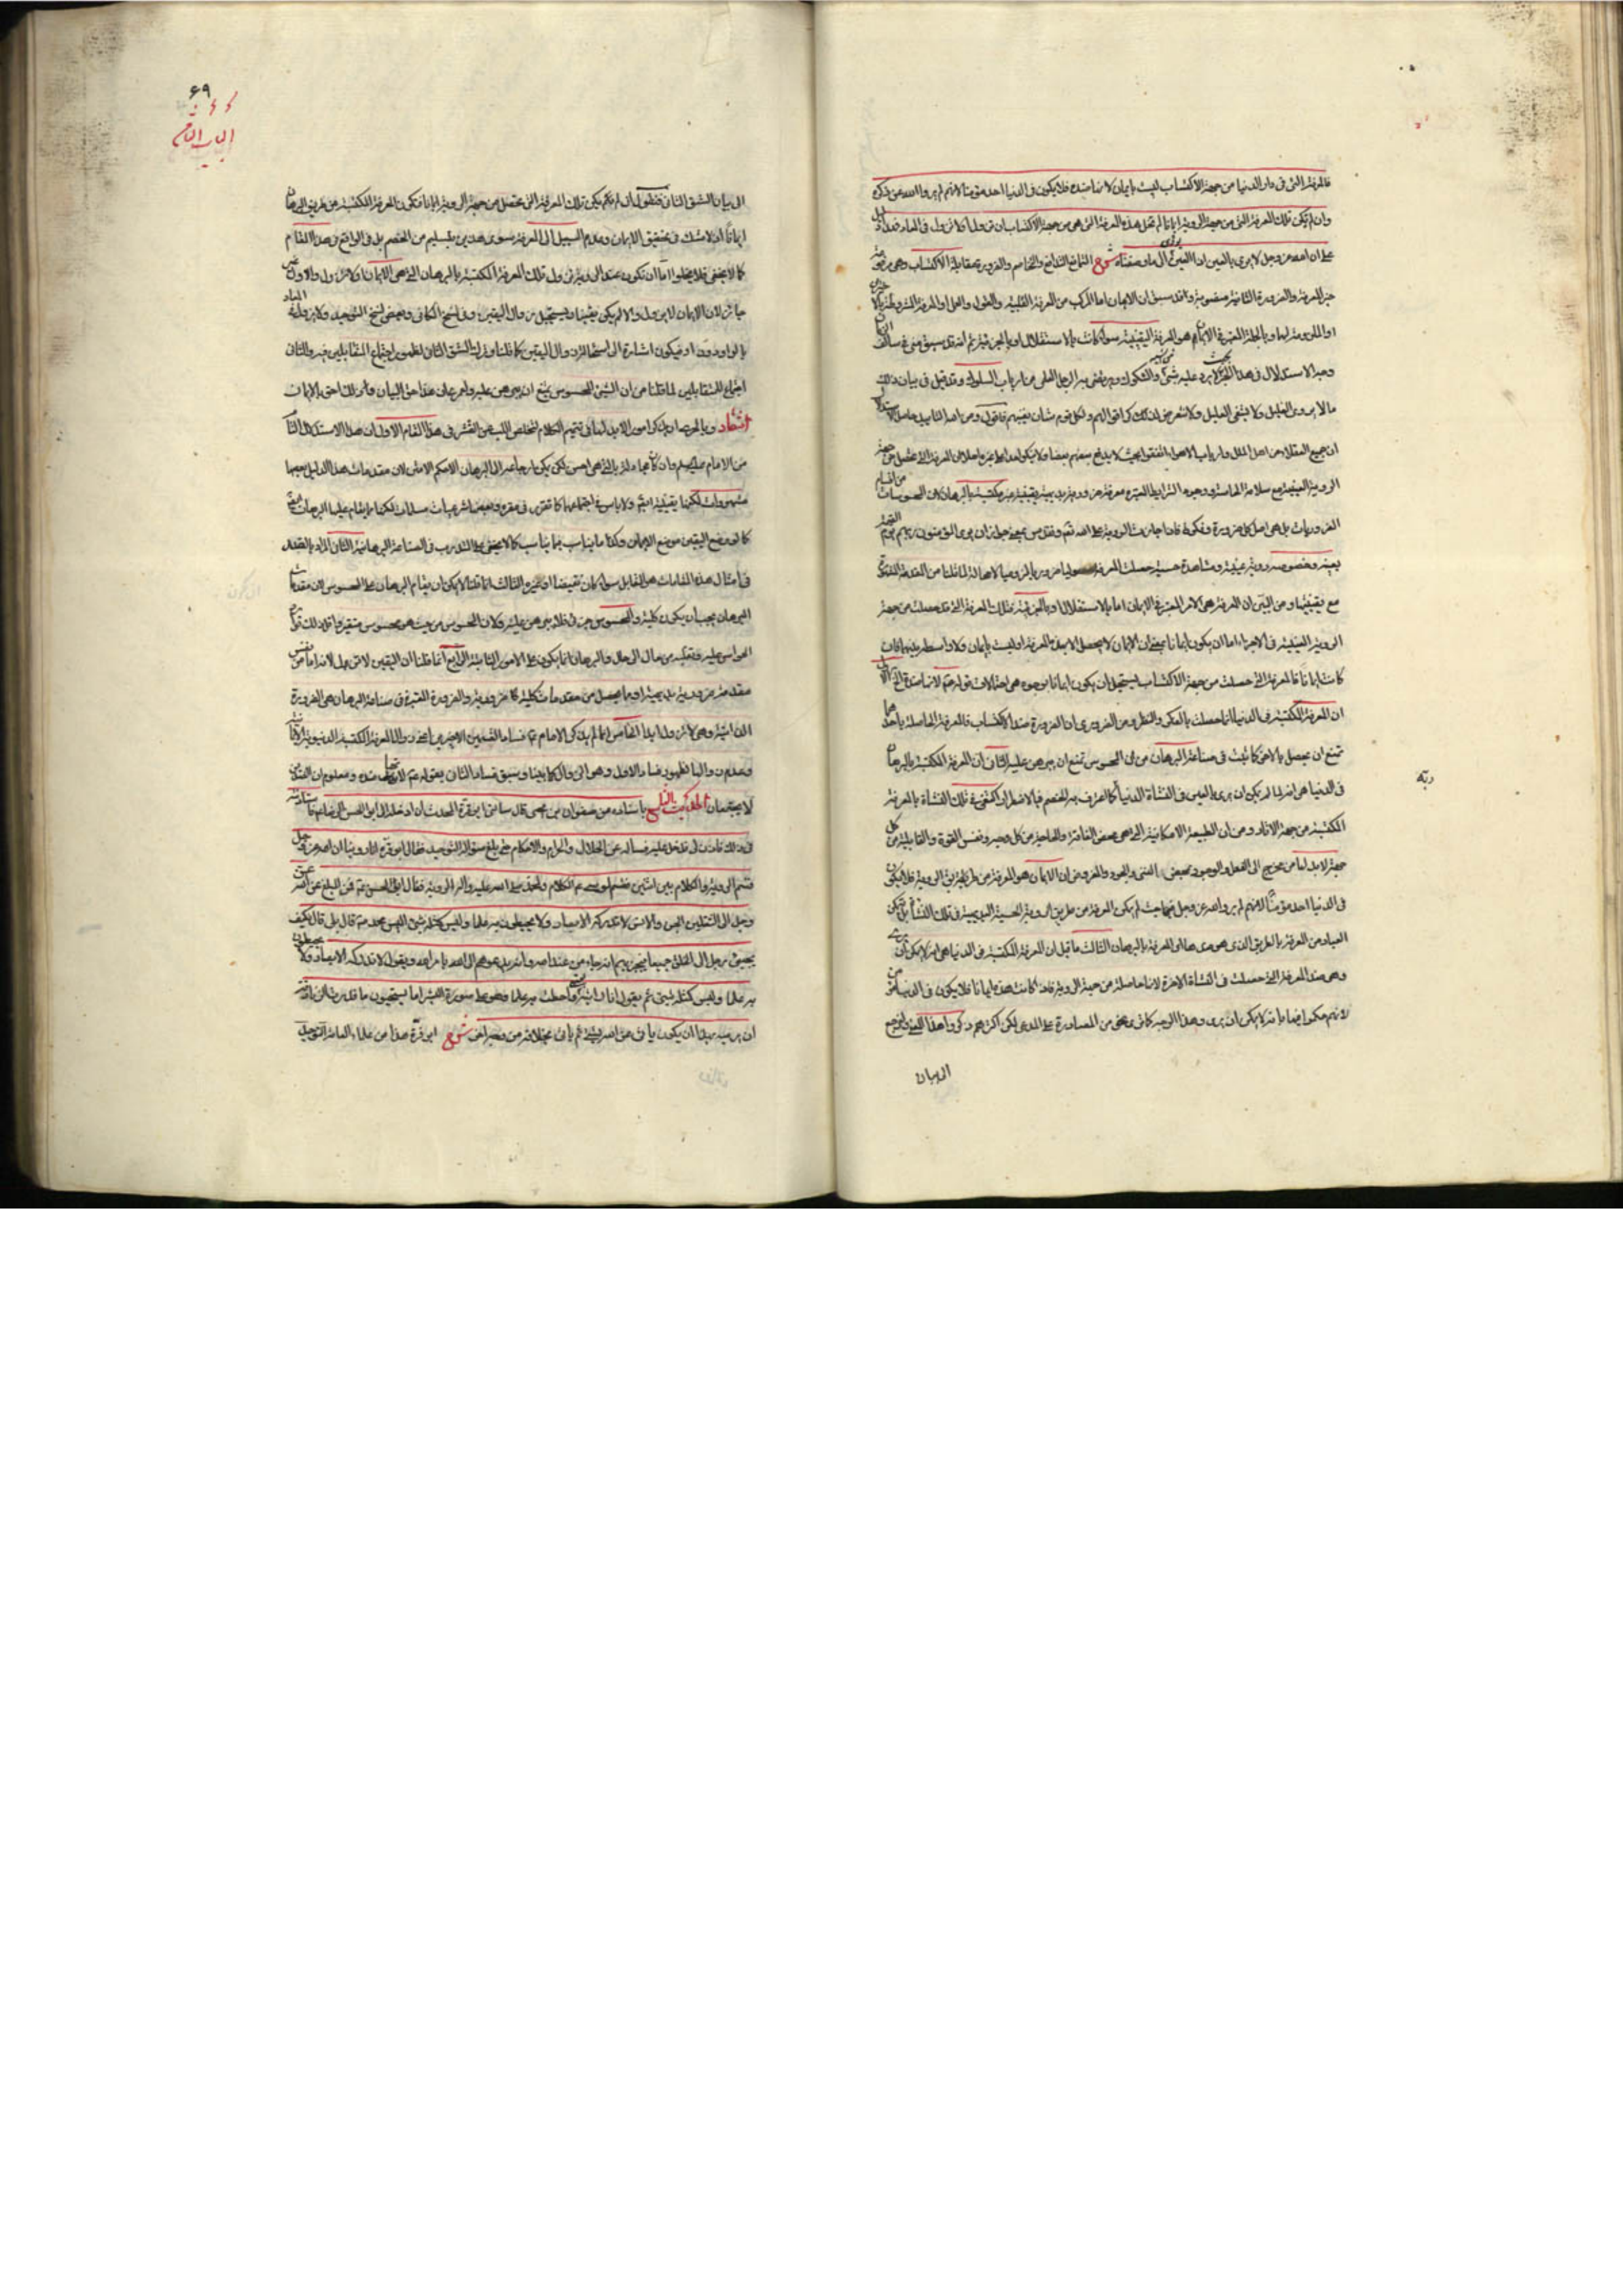 فالمعرفة التى فى دار الدنيا من جهة الاكتساب ليست بايمان لانها ضده فلا يكون فى الدنيا احد مؤمنا لانهم لم يروا الله عز ذكره
وان لم يكن تلك المعرفة التى من جهة الرؤية ايمانا لم تخل هذه المعرفة التى هى من جهة الاكتساب ان تزول او لا تزول فى المعاد فهذا دليل
على ان الله عز وجل لا يرى بالعين اذ العين يؤدى الى ما وصفناه شرح التمانع التدافع والتخاصم والضرورة بمقابلة الاكتساب وهى مرفوعة
خبر المعرفة والضرورة الثانية منصوبة وقد سبق ان الايمان اما المركب من المعرفة القلبية والقول والعمل او المعرفة المشروطة
او الملزومة لهما وبالجملة المعتبر فى الايمان هو المعرفة اليقينية سواء كانت بالاستقلال او بالجزئية ثم انه قد سبق منى فى سالف الزمان
وجه الاستدلال فى هذا الخبر بحيث لا يرد عليه شئ من الشبه والشكوك ويرتضى به الرجل العلمى من ارباب السلوك وقد قيل فى بيان ذلك
ما لا يروى الغليل ولا يشفى العليل ولا نتعرض لذلك كرامة لقوالهم ولكل قوم شان يغنيهم فاقول ومن الله التاييد حاصل الاستدلال
ان جميع العقلاء من اهل الملل وارباب الاهواء اتفقوا بحيث لا يدافع بعضهم بعضا ولا ينكر احد غيره اصلا ان المعرفة التى تحصل من جهة
الرؤية العينية مع سلامة الحاسة ووجود الشرايط المعتبرة معرفة ضرورية بديهية يقينية غير مكتسبة بالبرهان لان المحسوسات من اقسام
الضروريات بل هى اصل كل ضرورة وفكرة فاذا جازت الروية على الله تعالى وتقدس بمعنى جواز ان يرى المؤمنون ربهم يوم القيمة
بعينه وخصوصه رؤية عينية ومشاهدة حسية حصلت المعرفة حصولا ضروريا لزوميا لا محالة لما قلنا من المقدمة المتفق
مع يقينيتها ومن البين ان المعرفة هى الامر المعتبر فى الايمان اما بالاستقلال او بالجزئية فتلك المعرفة التى قد حصلت من جهة
الرؤية العينية فى الاخرة اما ان يكون ايمانا بمعنى ان الايمان لا يحصل الا بهذه المعرفة او ليست بايمان ولا واسطة بينهما فان
كانت ايمانا فالمعرفة التى حصلت من جهة الاكتساب يستحيل ان يكون ايمانا بوجوه هى احتمالات قوله عم لانها ضده الاول
ان المعرفة المكتسبة فى الدنيا انما حصلت بالفكر والنظر ومن الضرورى ان الضرورة ضد الاكتساب فالمعرفة الحاصلة باحدهما
تمتنع ان يحصل بالاخر كما ثبت فى صناعة البرهان من ان المحسوس تمتنع ان يبرهن عليه الثانى ان المعرفة المكتسبة بالبرهان
فى الدنيا هى انه لا يمكن ان يرى بالعين فى النشأة الدنيا كما اعترف به الخصم فبالاضطرار اكتفى فى تلك النشأة بالمعرفة
المكتسبة من جهة الاثار ومن ان الطبيعة الامكانية التى هى محض الفاقة والعاجز من كل وجه ونفس القوة والقابلية من كل
جهة لابد لها من مخرج الى الفعل والوجود ومحيص الى الغنى والجود والمفروض ان الايمان هو المعرفة من طريقة الرؤية فلا يكون
فى الدنيا احد مؤمنا لانهم لم يروا الله عز وجل فيها حيث لم يكن المعرفة من طريق الرؤية الحسية البديهية فى تلك النشأة بل تمكن
العباد من المعرفة بالطريق الذى هو ضدها اى المعرفة بالبرهان الثالث ما قيل ان المعرفة المكتسبة فى الدنيا هى انه لا يمكن ان يرى
وهى ضد المعرفة التى حصلت فى النشأة الاخرة لانها حاصلة من جهة الرؤية فاذا كانت هذه ايمانا فلا يكون فى الدنيا مؤمن
لانهم حكموا فيها بانه لا يمكن ان يرى وهذا الوجه كما ترى هى من المصادرة على المدعى لكن اكثرهم ذكروا هذا المعنى ولنرجع
الى بيان
ربه
۶۹
الباب الثامن
الى بيان الشق الثانى فنقول ان لم يكن تلك المعرفة التى تحصل من جهة الرؤية ايمانا فتكون المعرفة المكتسبة من طريق البرهان
ايمانا اذ لا شك فى تحقيق الايمان وعدم السبيل الى المعرفة سوى هذين بتسليم من الخصم بل فى الواقع فى هذا المقام
كما لا يخفى فلا يخلو اما ان تكون عند الرؤية تزول تلك المعرفة المكتسبة بالبرهان التى هى الايمان او لا تزول والاول غير
جائز لان الايمان لا يزول والا لم يكن يقينا ويستحيل زوال اليقين وفى نسخ الكافى وبعض نسخ التوحيد ولا يزول فى المعاد
بالواو دون او فيكون اشارة الى استحالة زوال اليقين كما قلنا وترك الشق الثانى لظهور اجتماع المتقابلين فيه والثانى
اجتماع للمتقابلين لما قلنا من ان الشئ المحسوس يمتنع ان يبرهن عليه
ارشاد وبالحرى ان نذكر امورا لابد لها فى تتميم الكلام لتخلص اللب عن القشر فى هذا المقام الاول ان هذا الاستدلال
من الامام عليه السلام وان كان مجادلة بالتى هى احسن لكن يمكن ارجاعه الى البرهان الاحكم الامتن لان مقدمات هذا الدليل بعضها
مشهورات لكنها يقينية ايضا ولا باس فى اجتماعهما كما تقرر فى مقره وبعضها شرعيات مسلمات لكنها مما يقام عليها البرهان
كما لو وضع اليقين موضع الايمان وكذا ما يناسب بما يناسب كما لا يخفى على المتدرب فى الصناعة البرهانية الثانى المراد بالضد
فى امثال هذه المقامات هو المقابل سواء كان نقيضا او غيره الثالث انما قلنا لا يمكن ان يقام البرهان على المحسوس لان مقدمات
البرهان يجب ان يكون كلية والمحسوس جزئى فلا يبرهن عليه ولان المحسوس من حيث هو محسوس متغير
الحواس عليه وتغيره من حال الى حال والبرهان انما يكون على الامور الثابتة الرابع انما قلنا ان اليقين لا يزول لانه اما من نفس
مقدمة ضرورية بديهية او ما يحصل من مقدمات كلية كما ضرورية والضرورة المعتبرة فى صناعة البرهان هى الضرورة
الذاتية وهى لا تزول ابدا الخامس انما لم يذكر الامام عم فساد الشقين الاخيرين اعنى زوال المعرفة المكتسبة الدنيوية
وعدم زوالها لظهور فساد الاول وهو الزوال كما بينا وسبق فساد الثانى بقوله عم لانها ضده ومعلوم ان الضدين
لا يجتمعان الحديث التاسع باسناده عن صفوان بن يحيى قال سالنى ابو قرة المحدث ان ادخله الى ابى الحسن الرضا عم فاستاذنته
فى ذلك فاذن لى فدخل عليه فساله عن الحلال والحرام والاحكام حتى بلغ سؤاله التوحيد فقال ابو قرة انا روينا ان الله عز وجل
قسم الرؤية والكلام بين اثنين فقسم لموسى عم الكلام ولمحمد صلى الله عليه واله الرؤية فقال ابو الحسن عم فمن المبلغ عن الله عز
وجل الى الثقلين الجن والانس لا تدركه الابصار ولا يحيطون به علما وليس كمثله شئ اليس محمد ص قال بلى قال فكيف
يجئ رجل الى الخلق جميعا فيخبرهم انه جاء من عند الله وانه يدعوهم الى الله بامر الله ويقول لا تدركه الابصار ولا يحيطون
به علما وليس كمثله شئ ثم يقول انا رايته بعينى واحطت به علما وهو على صورة البشر اما تستحيون ما قدرت الزنادقة
ان ترميه بهذا ان يكون ياتى عن الله بشئ ثم ياتى بخلافه من وجه اخر شرح ابو قرة هذا من علماء العامة